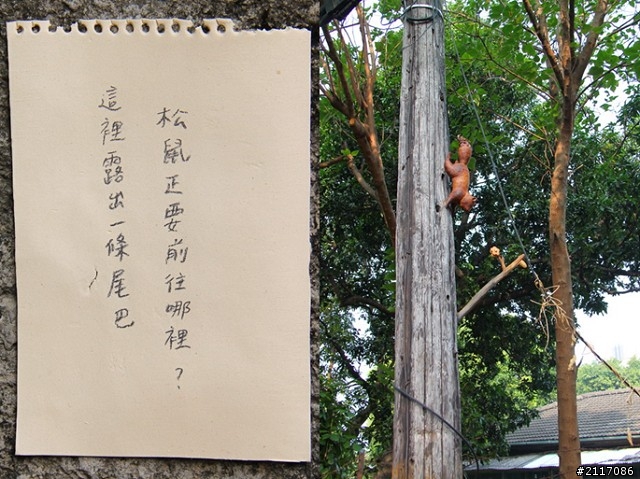 松鼠正要前往哪裡？
這裡露出一條尾巴
#2117086